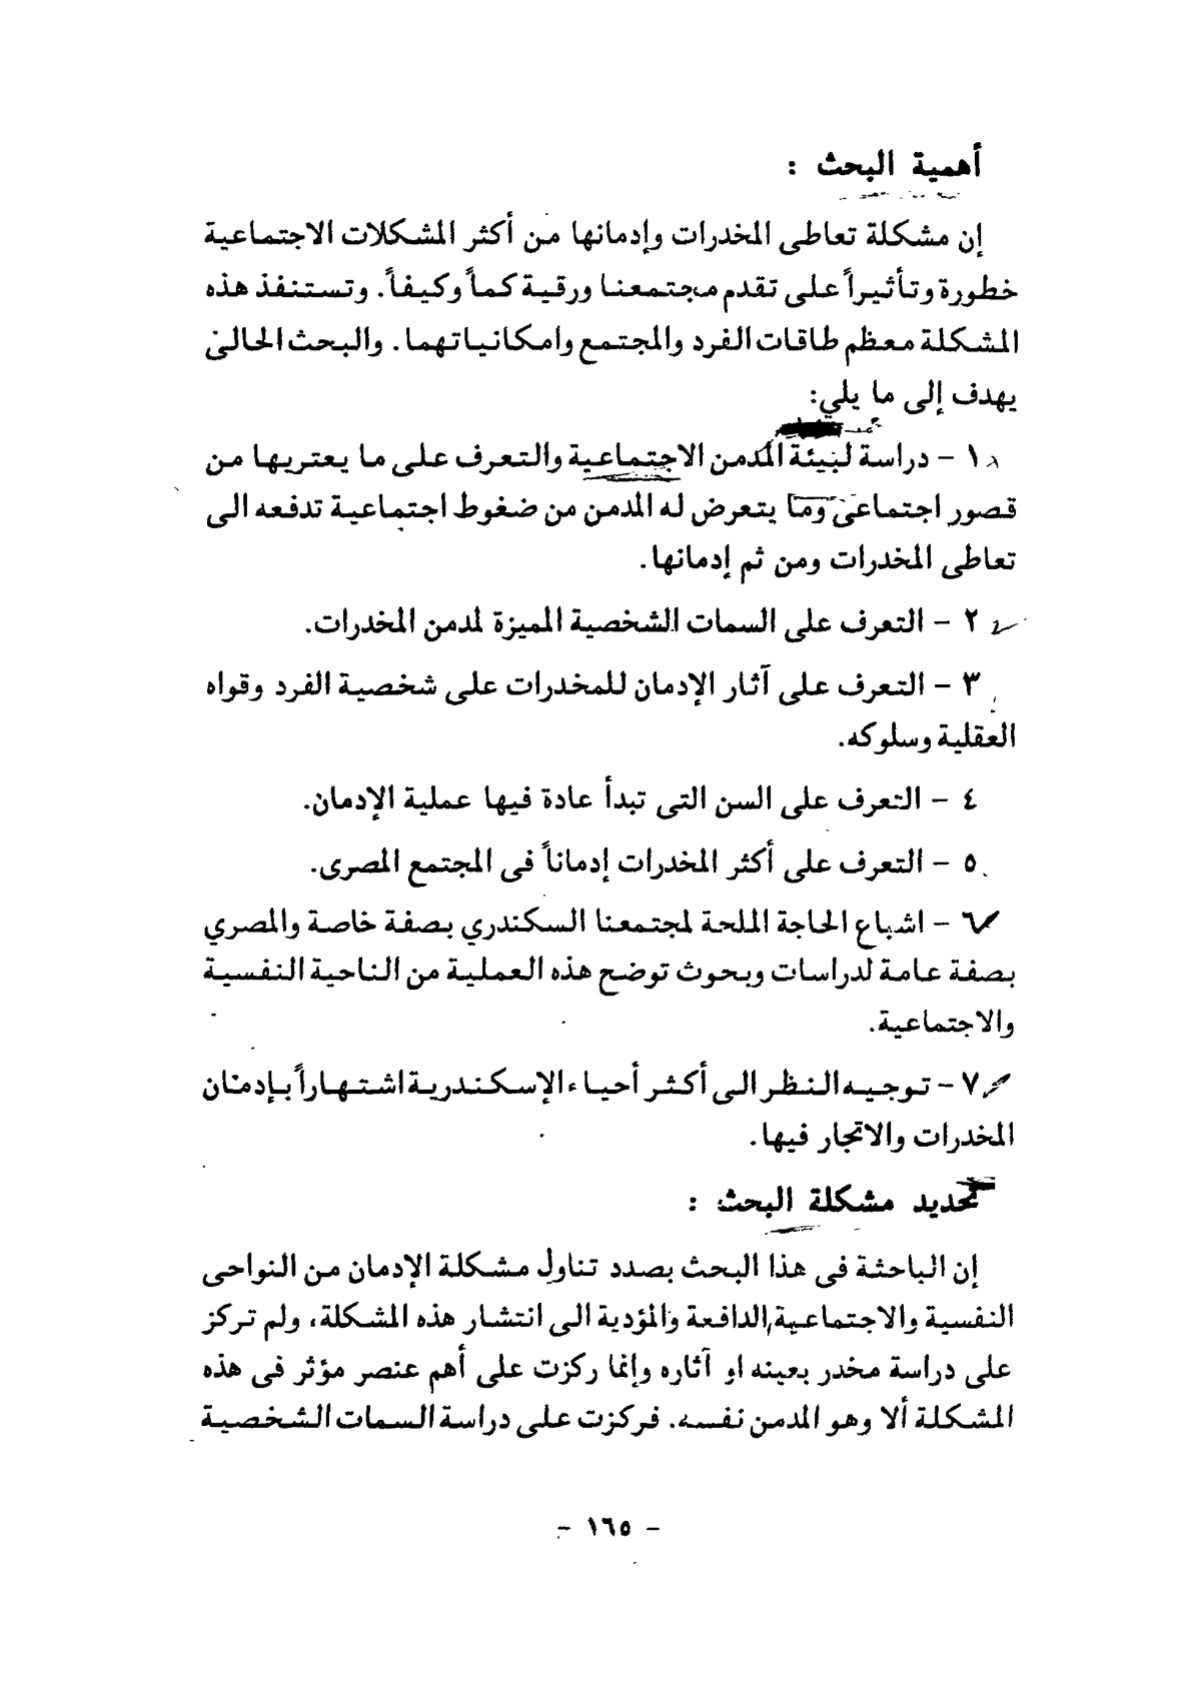 أهمية البحث :
إن مشكلة تعاطى المخدرات وإدمانها من أكثر المشكلات الاجتماعية
خطورة وتأثيراً على تقدم مجتمعنا ورقية كماً وكيفاً. وتستنفذ هذه
المشكلة معظم طاقات الفرد والمجتمع وامكانياتهما. والبحث الحالى
يهدف إلى ما يلي:
١ - دراسة لبيئة المدمن الاجتماعية والتعرف على ما يعتريها من
قصور اجتماعى وما يتعرض له المدمن من ضغوط اجتماعية تدفعه الى
تعاطى المخدرات ومن ثم إدمانها.
٢ - التعرف على السمات الشخصية المميزة لمدمن المخدرات.
٣ - التعرف على آثار الإدمان للمخدرات على شخصية الفرد وقواه
العقلية وسلوكه.
٤ - التعرف على السن التى تبدأ عادة فيها عملية الإدمان.
٥ - التعرف على أكثر المخدرات إدماناً فى المجتمع المصرى.
٦ - اشباع الحاجة الملحة لمجتمعنا السكندري بصفة خاصة والمصري
بصفة عامة لدراسات وبحوث توضح هذه العملية من الناحية النفسية
والاجتماعية.
٧ - توجيه النظر الى أكثر أحياء الإسكندرية اشتهاراً بإدمان
المخدرات والاتجار فيها.
تحديد مشكلة البحث :
إن الباحثة فى هذا البحث بصدد تناول مشكلة الإدمان من النواحى
النفسية والاجتماعية الدافعة والمؤدية الى انتشار هذه المشكلة، ولم تركز
على دراسة مخدر بعينه او آثاره وإنما ركزت على أهم عنصر مؤثر فى هذه
المشكلة ألا وهو المدمن نفسه. فركزت على دراسة السمات الشخصية
- ١٦٥ -